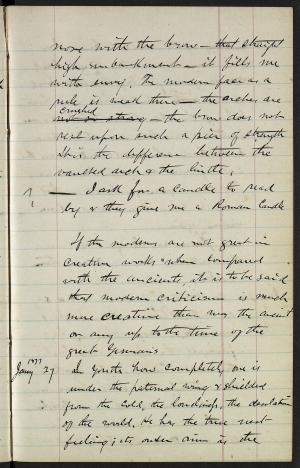 nose with the brow — that straight
high embankment — it fills me
with envy. The modern face as a
rule is weak there — the arches are
crushed
not so strong — the brow does not
rest upon such a pier of strength
It is the difference between the
vaulted arch & the lintle.
? — I ask for a candle to read
by & they give me a Roman Candle
If the moderns are not great in
creative works when compared
with the ancients, it is to be said
that modern criticism is much
more creative than was the ancient
or any up to the time of the
great Germans.
1877
Jany 27 In youth how completely one is
under the paternal wing & shielded
from the cold, the loneliness, the desolation
of the world. He has the true nest
feeling; its outer rim is the